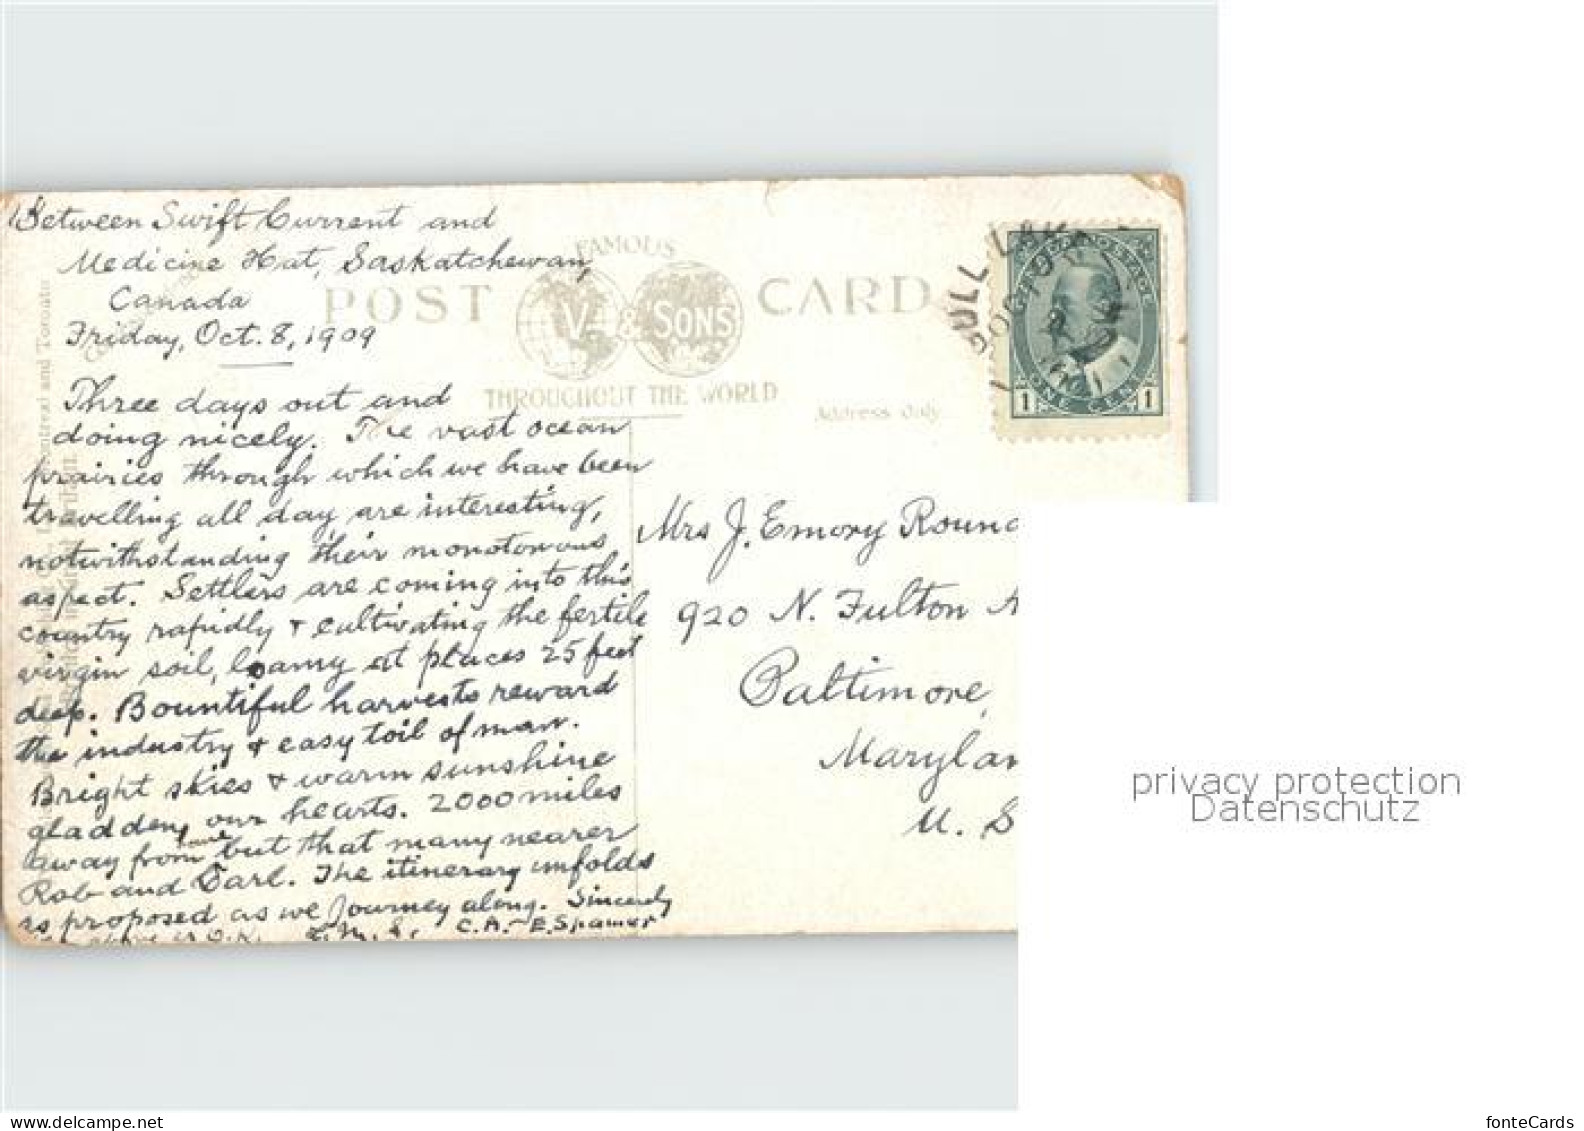 Between Swift Current and
Medicine Hat, Saskatchewan,
Canada
Friday, Oct. 8, 1909
FAMOUS
POST CARD
V & SONS
THROUGHOUT THE WORLD
Address Only
GULL LAKE
CANADA POSTAGE
1 ONE CENT 1
Three days out and
doing nicely. The vast ocean
prairies through which we have been
travelling all day are interesting,
notwithstanding their monotonous
aspect. Settlers are coming into this
country rapidly & cultivating the fertile
virgin soil, loamy at places 25 feet
deep. Bountiful harvests reward
the industry & easy toil of man.
Bright skies & warm sunshine
gladden our hearts. 2000 miles
away from but that many nearer
Rob and Earl. The itinerary unfolds
as proposed as we journey along. Sincerely
above is O.K. C.A. - E. Spamer
Montreal and Toronto
Mrs J. Emory Roun
920 N. Fulton A
Baltimore,
Marylan
U. S
privacy protection
Datenschutz
www.delcampe.net
fonteCards